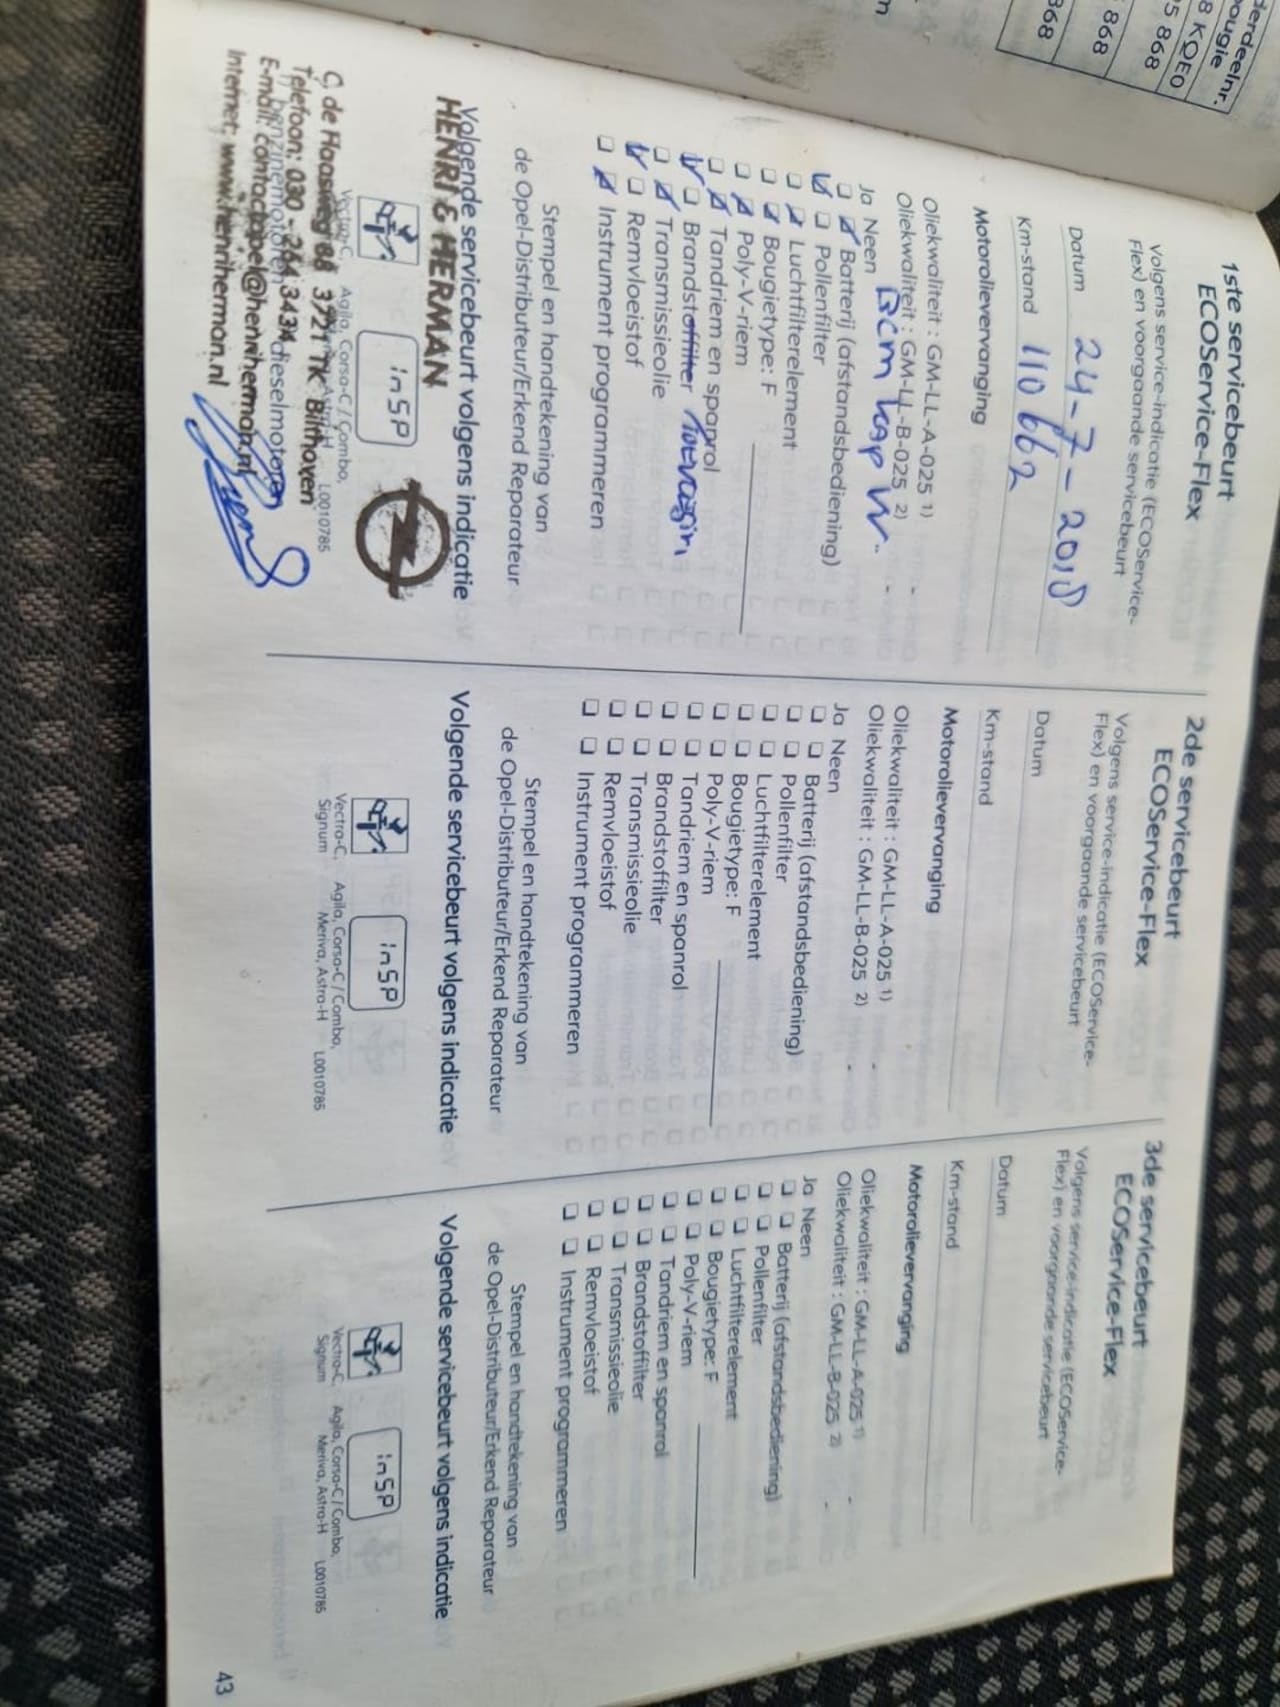 derdeelnr.
ougie
8 KQE0
5 868
868
868
1ste servicebeurt
ECOService-Flex
Volgens service-indicatie (ECOService-
Flex) en voorgaande servicebeurt
Datum 24-7-2018
Km-stand 110 662
Motorolievervanging
Oliekwaliteit : GM-LL-A-025 1)
Oliekwaliteit : GM-LL-B-025 2)
Ja Neen
Batterij (afstandsbediening)
Pollenfilter
Luchtfilterelement
Bougietype: F
Poly-V-riem
Tandriem en spanrol
Brandstoffilter
Transmissieolie
Remvloeistof
Instrument programmeren
Stempel en handtekening van
de Opel-Distributeur/Erkend Reparateur
Volgende servicebeurt volgens indicatie
HENRI & HERMAN
InSP
Vectra-C, Agila, Corsa-C / Combo,
L0010785
C. de Haasweg 68 3721 TK Bilthoven
Telefoon: 030 - 264 3434
benzinemotoren dieselmotoren
E-mail: contactopel@henriherman.nl
Internet: www.henriherman.nl
2de servicebeurt
ECOService-Flex
Volgens service-indicatie (ECOService-
Flex) en voorgaande servicebeurt
Datum
Km-stand
Motorolievervanging
Oliekwaliteit : GM-LL-A-025 1)
Oliekwaliteit : GM-LL-B-025 2)
Ja Neen
Batterij (afstandsbediening)
Pollenfilter
Luchtfilterelement
Bougietype: F
Poly-V-riem
Tandriem en spanrol
Brandstoffilter
Transmissieolie
Remvloeistof
Instrument programmeren
Stempel en handtekening van
de Opel-Distributeur/Erkend Reparateur
Volgende servicebeurt volgens indicatie
InSP
Vectra-C, Agila, Corsa-C / Combo,
Signum Meriva, Astra-H L0010785
3de servicebeurt
ECOService-Flex
Volgens service-indicatie (ECOService-
Flex) en voorgaande servicebeurt
Datum
Km-stand
Motorolievervanging
Oliekwaliteit : GM-LL-A-025 1)
Oliekwaliteit : GM-LL-B-025 2)
Ja Neen
Batterij (afstandsbediening)
Pollenfilter
Luchtfilterelement
Bougietype: F
Poly-V-riem
Tandriem en spanrol
Brandstoffilter
Transmissieolie
Remvloeistof
Instrument programmeren
Stempel en handtekening van
de Opel-Distributeur/Erkend Reparateur
Volgende servicebeurt volgens indicatie
InSP
Vectra-C, Agila, Corsa-C / Combo,
Signum Meriva, Astra-H L0010785
43